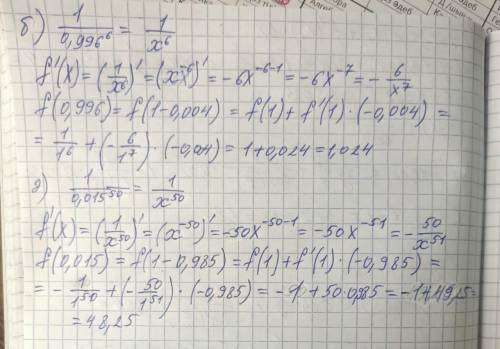 б) 1/0,996⁶ = 1/x⁶
f'(x) = (1/x⁶)' = (x⁻⁶)' = -6x⁻⁶⁻¹ = -6x⁻⁷ = - 6/x⁷
f(0,996) = f(1-0,004) = f(1) + f'(1) · (-0,004) =
= 1/1⁶ + (- 6/1⁷) · (-0,004) = 1+0,024 = 1,024
г) 1/0,015⁵⁰ = 1/x⁵⁰
f'(x) = (1/x⁵⁰)' = (x⁻⁵⁰)' = -50x⁻⁵⁰⁻¹ = -50x⁻⁵¹ = - 50/x⁵¹
f(0,015) = f(1-0,985) = f(1) + f'(1) · (-0,985) =
= - 1/1⁵⁰ + (- 50/1⁵¹) · (-0,985) = -1 + 50·0,985 = -1+49,5=
= 48,25